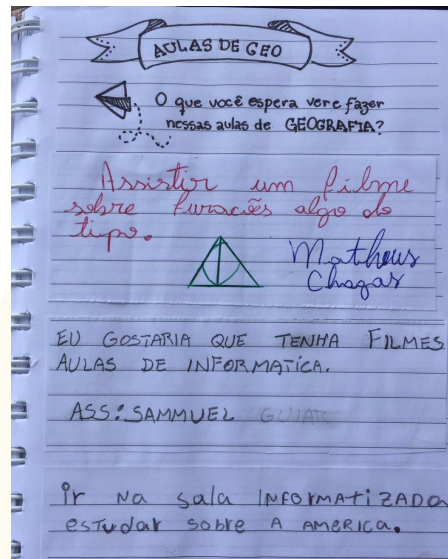 AULAS DE GEO
O que você espera ver e fazer
nessas aulas de GEOGRAFIA?
Assistir um filme
sobre furacões algo do
tipo.
Matheus
Chagas
EU GOSTARIA QUE TENHA FILMES
AULAS DE INFORMATICA.
ASS: SAMMUEL
ir na sala INFORMATIZADA
estudar sobre A AMERICA.